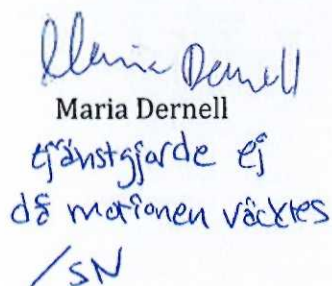 Maria Dernell
Maria Dernell
tjänstgjorde ej
då motionen väcktes
/SN